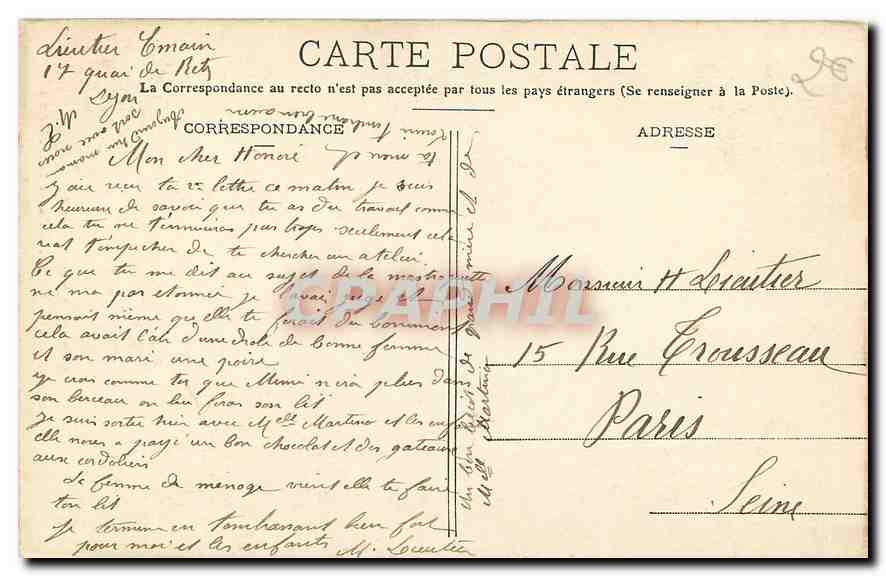 Lieutier Emain
17 quai de Retz
Lyon
CARTE POSTALE
La Correspondance au recto n'est pas acceptée par tous les pays étrangers (Se renseigner à la Poste).
CORRESPONDANCE
ADRESSE
Mon cher Honoré
j'ai recu ta lettre ce matin je suis
heureuse de savoir que tu as du travail comme
cela tu ne t'ennuiras pas trops seulement cela
vat t'empecher de te chercher un atelier
Ce que tu me dit au sujet de la
ne ma pas etonner je l'avai jugé et
pensait même que elle te ferait du boniment
cela avait l'air d'une drole de bonne femme
et son mari une poire
je crois comme toi que Mimi n'ira plus dans
son berceau on lui feras son lit
Je suis sortie hier avec Melle Martino et les enfts
elle nous a payé un bon chocolat et des gateaux
aux cordeliers
Se femme de menage vient elle te faire
ton lit
Je termine en t'embrassant bien fort
pour moi et les enfants M. Lieutier
un bon de grand mère et de
Melle Martino
Monsieur H Lieutier
15 Rue Trousseau
Paris
Seine
CPAPHIL